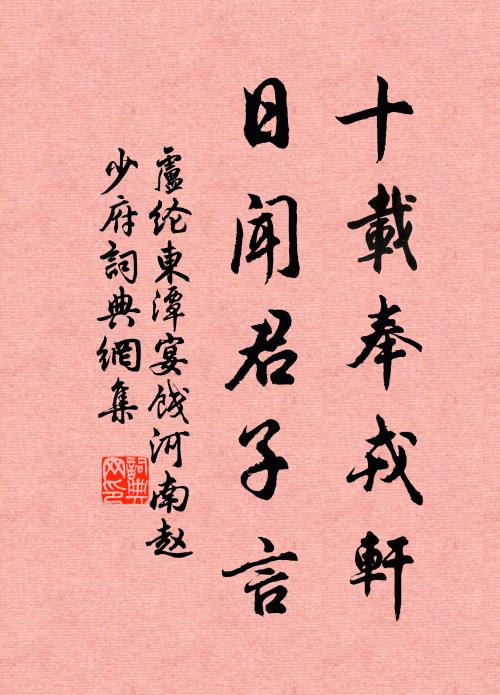 十載奉戎軒
日闻君子言
盧纶東潭宴饯河南赵
少府詞典網集
詞典网印